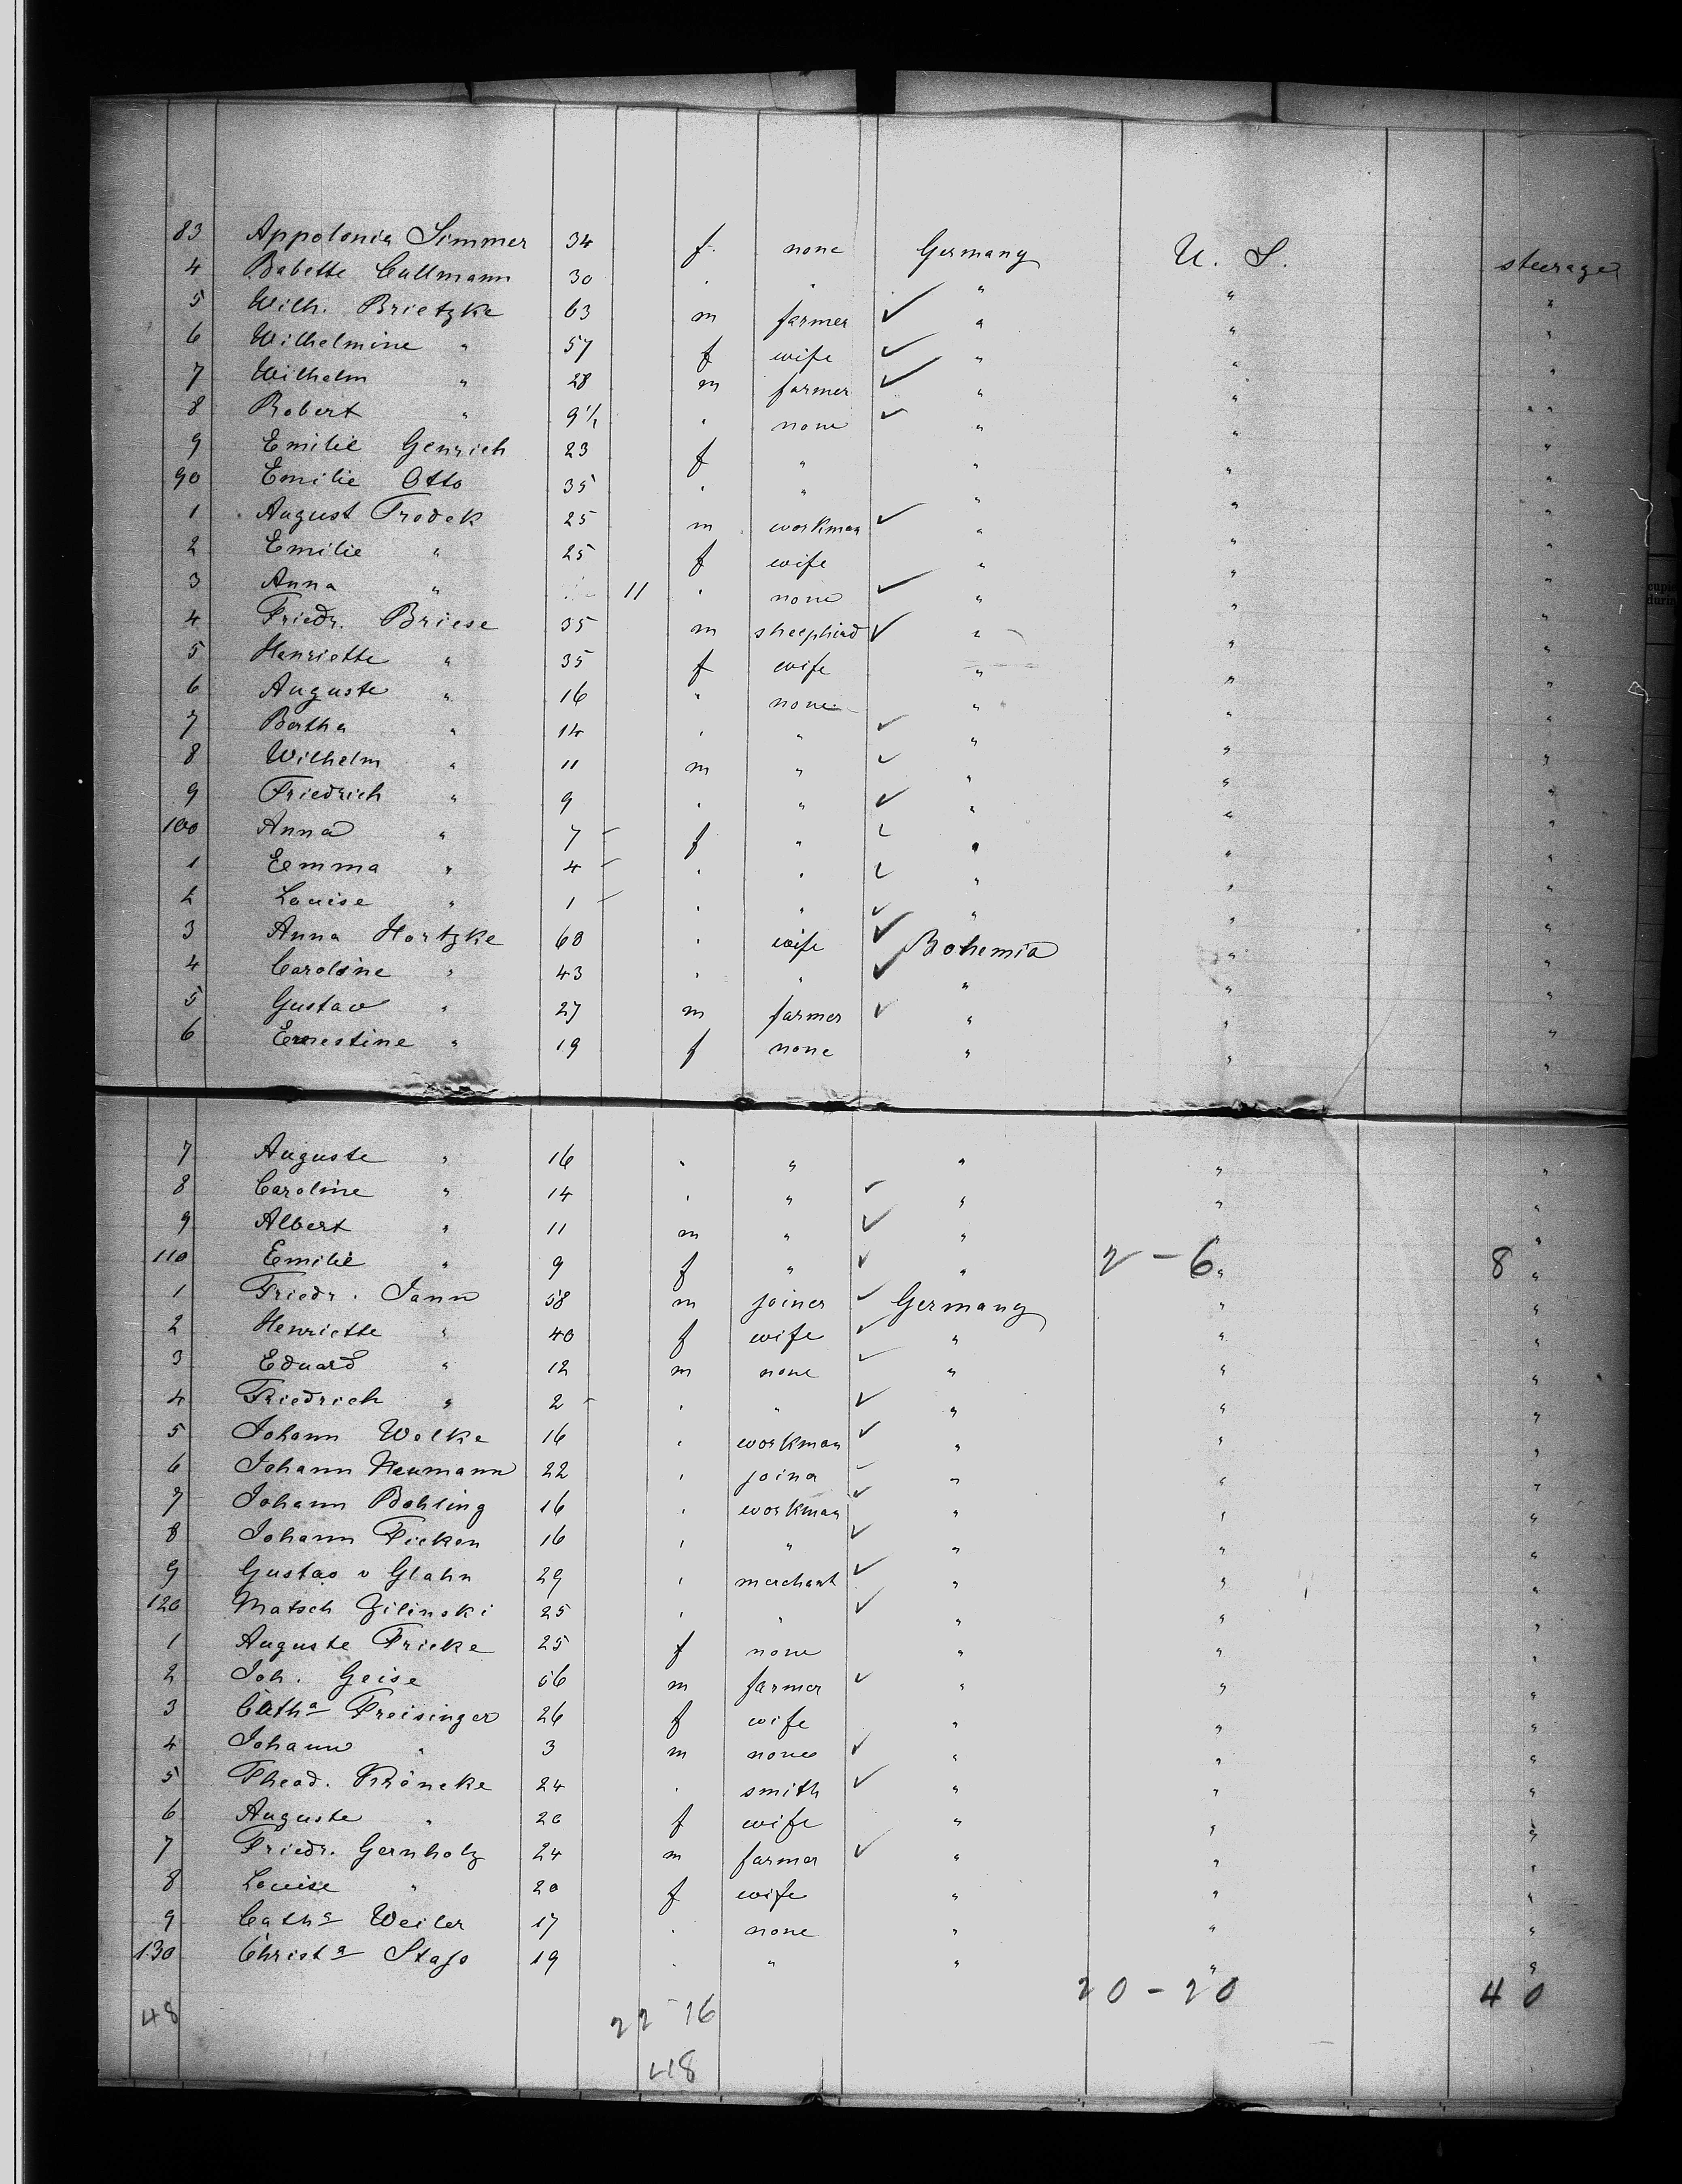 83 Appolonia Simmer 34 f. none Germany U. S. steerage
4 Babette Cullmann 30 " " " " "
5 Wilh. Brietzke 63 m farmer ✓ " " "
6 Wilhelmine " 57 f wife ✓ " " "
7 Wilhelm " 28 m farmer ✓ " " "
8 Robert " 9 1/2 " none ✓ " " "
9 Emilie Genrich 23 f " " " "
90 Emilie Otto 35 " " " " "
1 August Trodek 25 m workman ✓ " " "
2 Emilie " 25 f wife " " "
3 Anna " 11 " none ✓ " " "
4 Friedr. Briese 35 m sheepherd ✓ " " "
5 Henriette " 35 f wife " " "
6 Auguste " 16 " none " " "
7 Bertha " 14 " " ✓ " " "
8 Wilhelm " 11 m " ✓ " " "
9 Friedrich " 9 " " ✓ " " "
100 Anna " 7 f " ✓ " " "
1 Emma " 4 " " ✓ " " "
2 Louise " 1 " " ✓ " " "
3 Anna Hortzke 60 " wife ✓ Bohemia " "
4 Caroline " 43 " " ✓ " " "
5 Gustav " 27 m farmer ✓ " " "
6 Ernestine " 19 f none " " "
7 Auguste " 16 " " " " "
8 Caroline " 14 " " ✓ " " "
9 Albert " 11 m " ✓ " " "
110 Emilie " 9 f " ✓ " 2 - 6 " 8 "
1 Friedr. Jann 58 m joiner ✓ Germany " "
2 Henriette " 40 f wife ✓ " " "
3 Eduard " 12 m none ✓ " " "
4 Friedrich " 2 " " ✓ " " "
5 Johann Wolke 16 " workman ✓ " " "
6 Johann Neumann 22 " joiner ✓ " " "
7 Johann Bohling 16 " workman ✓ " " "
8 Johann Ficken 16 " " ✓ " " "
9 Gustav v Glahn 29 " merchant ✓ " " "
120 Matsch Zilinski 25 " " ✓ " " "
1 Auguste Fricke 25 f none " " "
2 Joh. Geise 56 m farmer ✓ " " "
3 Catha Freisinger 26 f wife " " "
4 Johann " 3 m none ✓ " " "
5 Theod. Kröncke 24 " smith ✓ " " "
6 Auguste " 20 f wife " " "
7 Friedr. Gernholz 24 m farmer ✓ " " "
8 Louise " 20 f wife " " "
9 Catha Weiler 17 " none " " "
130 Christa 19 " " " " "
20 - 20 40
48 22 16
48